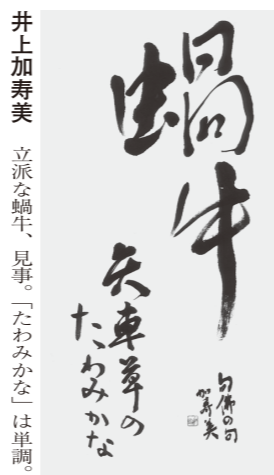 蝸牛
矢車草の
たわみかな
句佛の句
加寿美
井上加寿美 立派な蝸牛、見事。「たわみかな」は単調。